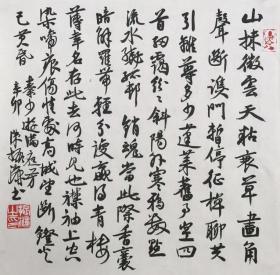 山抹微雲天粘衰草畫角
聲斷譙門暫停征棹聊共
引離尊多少蓬萊舊事空回
首煙靄紛紛斜陽外寒鴉數點
流水繞孤村銷魂當此際香囊
暗解羅帶輕分謾贏得青樓
薄幸名存此去何時見也襟袖上空
染啼痕傷情處高城望斷燈火
已黃昏 秦少游滿庭芳
辛卯 書